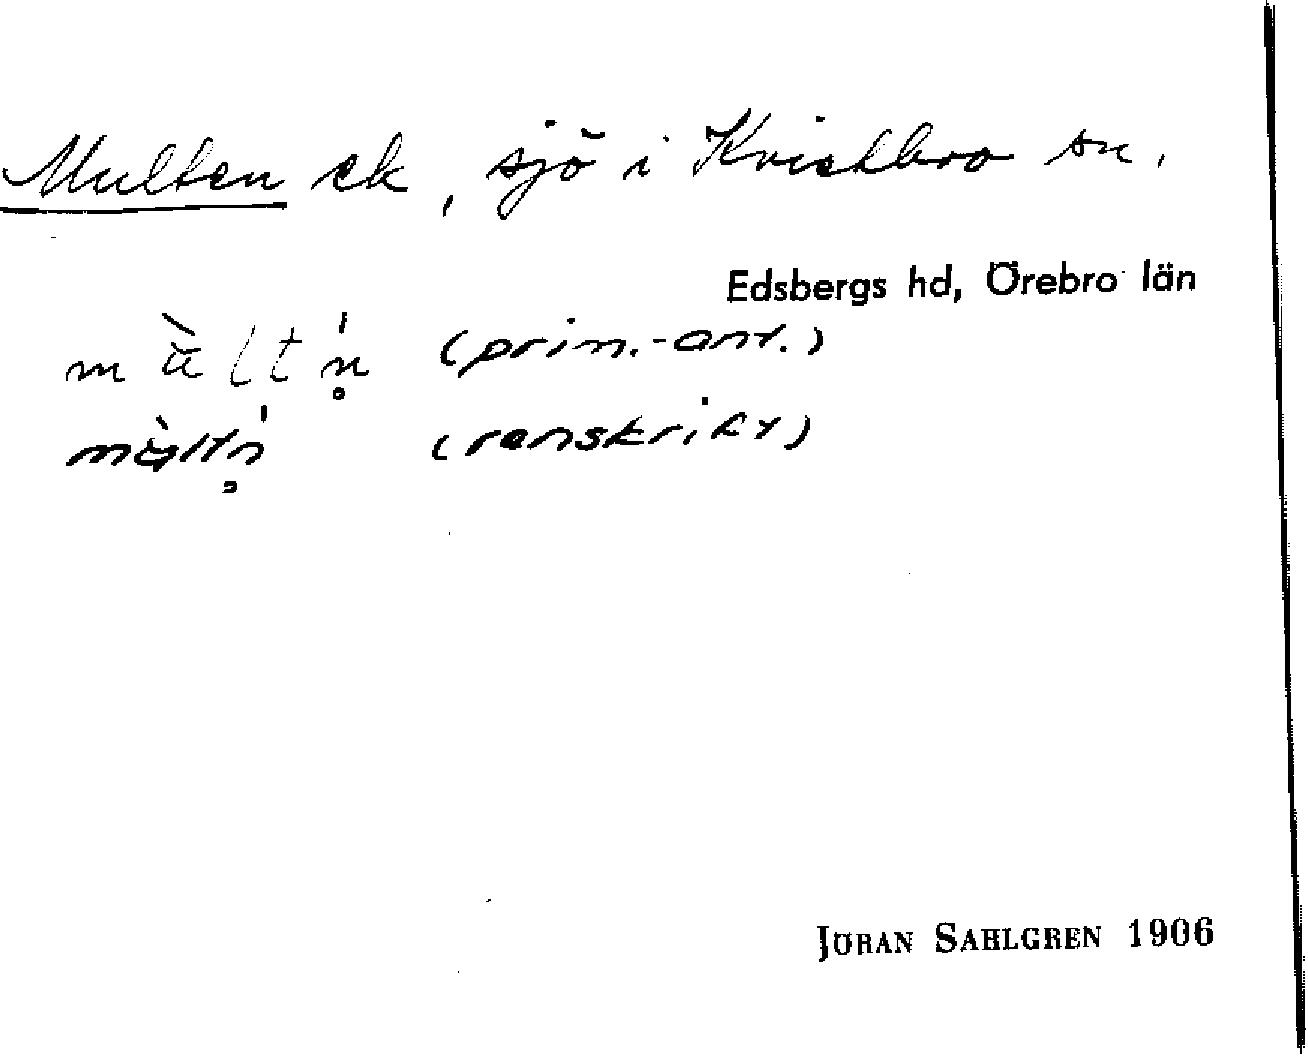 Multen ek, sjö i Kvistbro sn,
Edsbergs hd, Örebro län
(prim.-ant.)
(renskrift)
JÖRAN SAHLGREN 1906